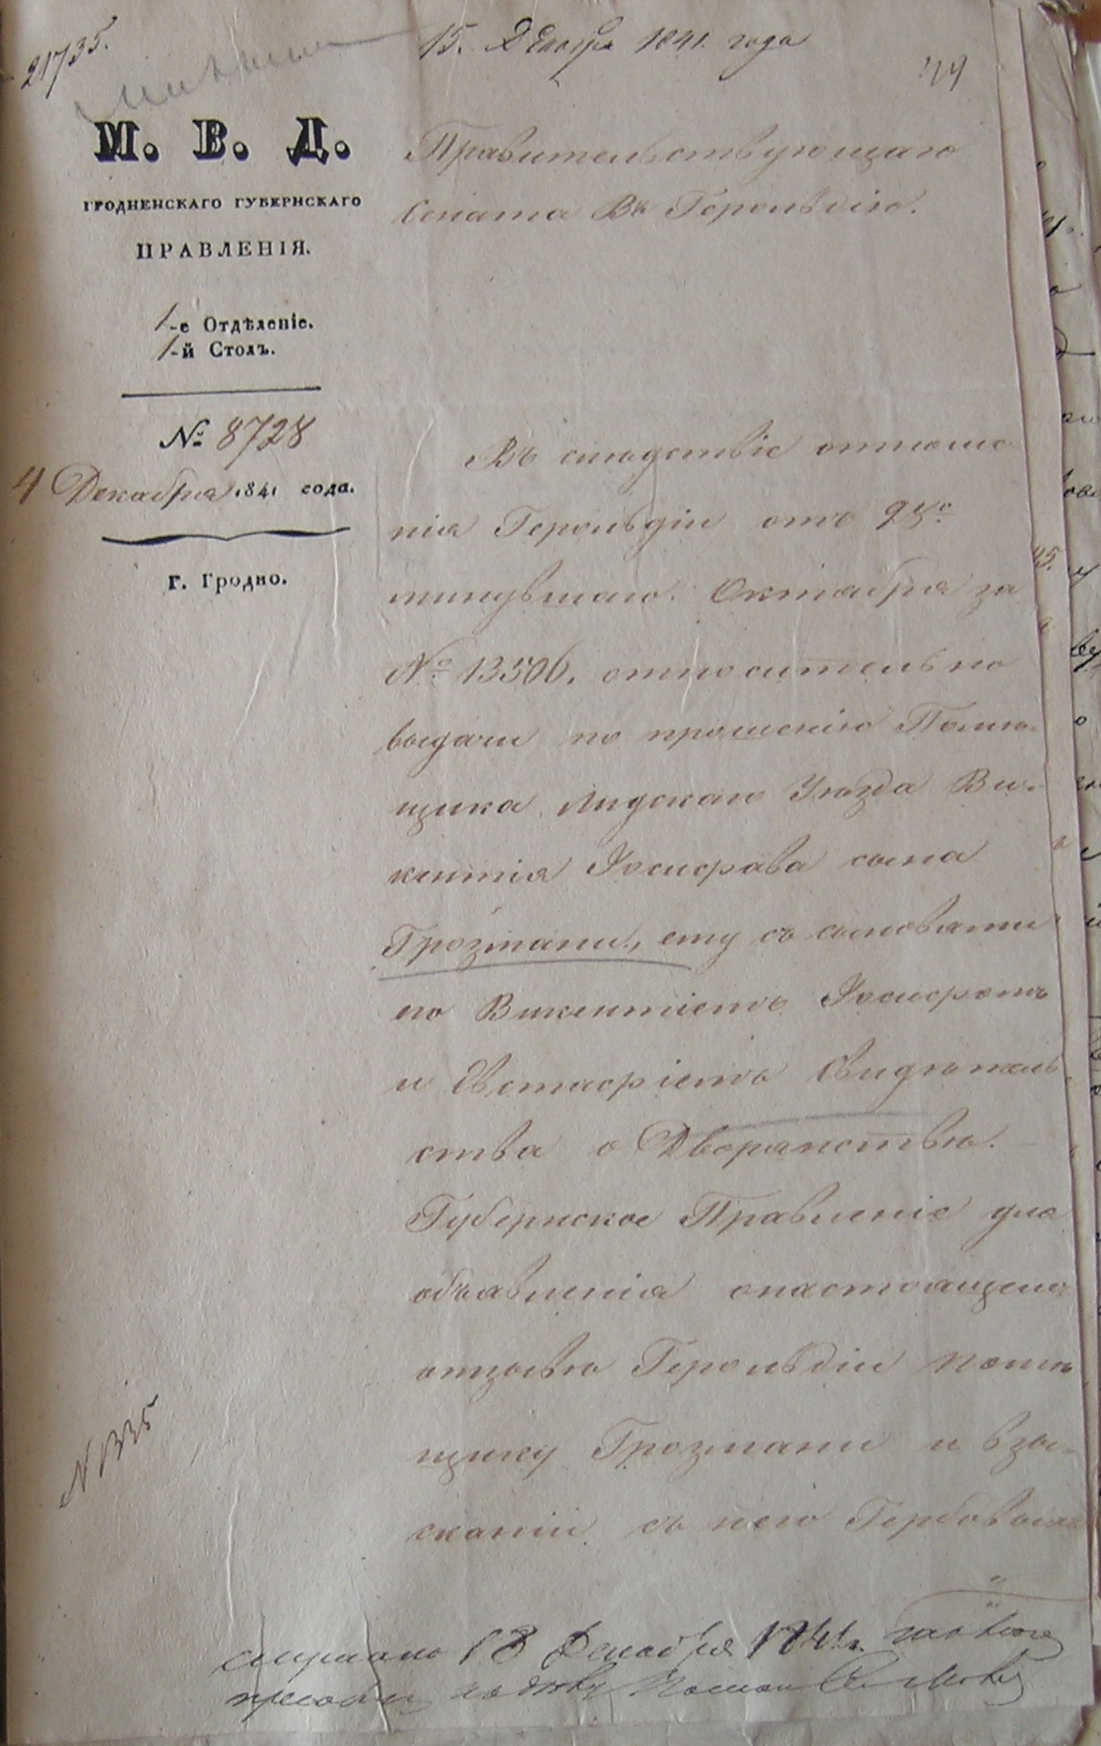 21735.
15. Декабря 1841. года
М. В. Д.
ГРОДНЕНСКАГО ГУБЕРНСКАГО
ПРАВЛЕНІЯ.
1-е Отдѣленіе.
1-й Столъ.
№ 8728
4 Декабря 1841 года.
г. Гродно.
Правительствующаго
Сената Въ Герольдію.
Въ слѣдствіе отноше-
нія Герольдіи отъ 25го
минувшаго Октября за
№ 13506, относительно
выдачи по прошенію Помѣ-
щика Лидскаго Уѣзда Ви-
кентія Іосифова сына
Грозмани, ему съ сыновьями
его Викентіемъ Іосифомъ
и Евстафіемъ Свидѣтель-
ства о Дворянствѣ.
Губернское Правленіе для
объявленія о настоящемъ
отзывѣ Герольдіи Помѣ-
щику Грозмани и взы-
сканіи съ него Гербовыхъ
N 335
18 Декабря 1841.